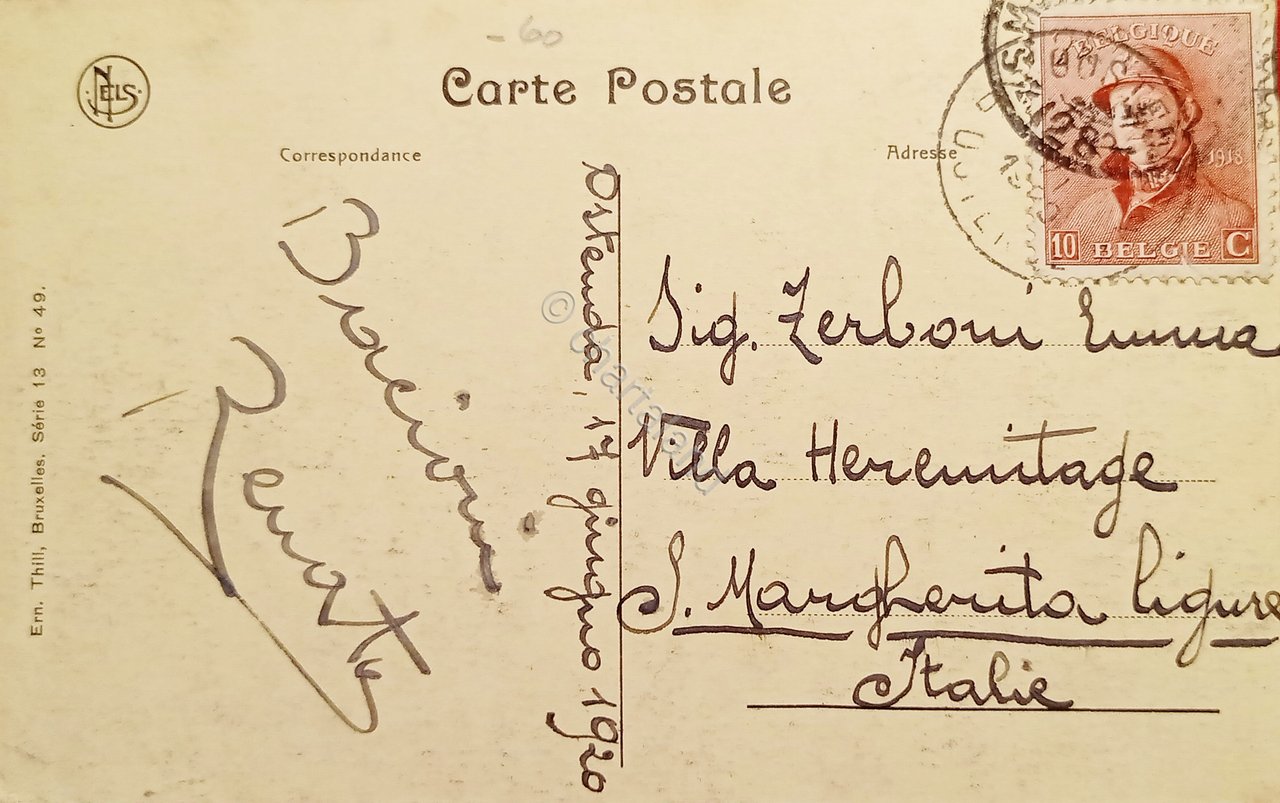 - 60
NELS
Carte Postale
Correspondance
Adresse
BELGIQUE
1918
10 BELGIE C
Ostenda, 17 giugno 1920
Bacioni
Renato
Sig. Zerboni Emma
Villa Heremitage
S. Margherita Ligure
Italie
Ern. Thill, Bruxelles, Série 13 Nº 49.
© Chartaland